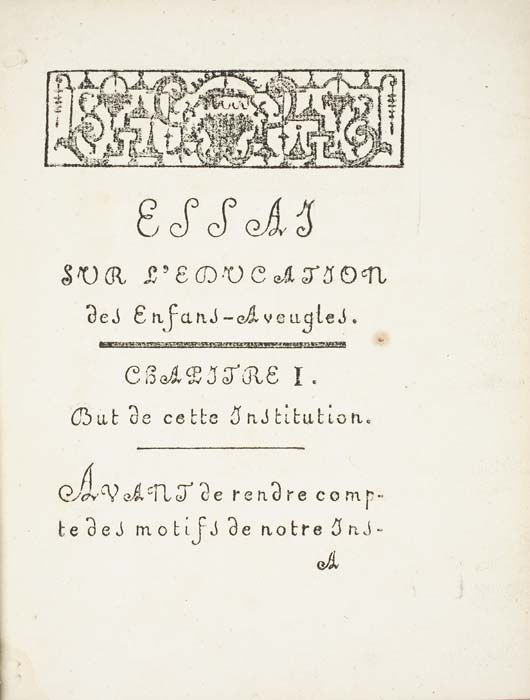 ESSAI
SUR L'EDUCATION
des Enfans-Aveugles.
CHAPITRE I.
But de cette Institution.
AVANT de rendre comp-
te des motifs de notre Ins-
A